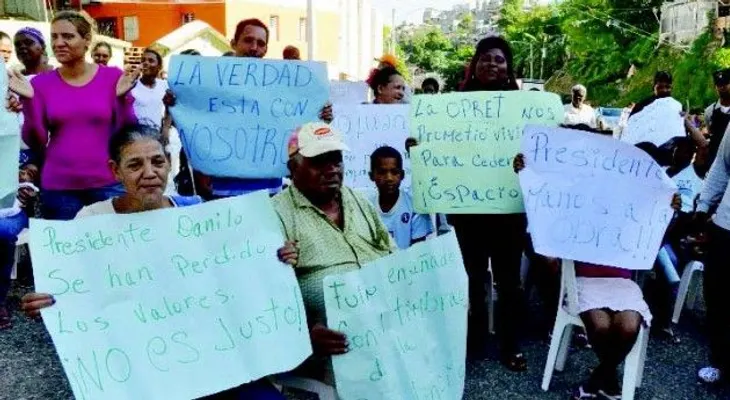 LA VERDAD
ESTA CON
NOSOTRO
La OPRET Nos
Prometió vivi
Para Ceder
¡Espacio
Presidente.
Manos a la
OBra!!
Presidente Danilo
Se han Perdido
Los Valores.
¡NO es Justo!
Fuin engañad
Con
timbra
de la